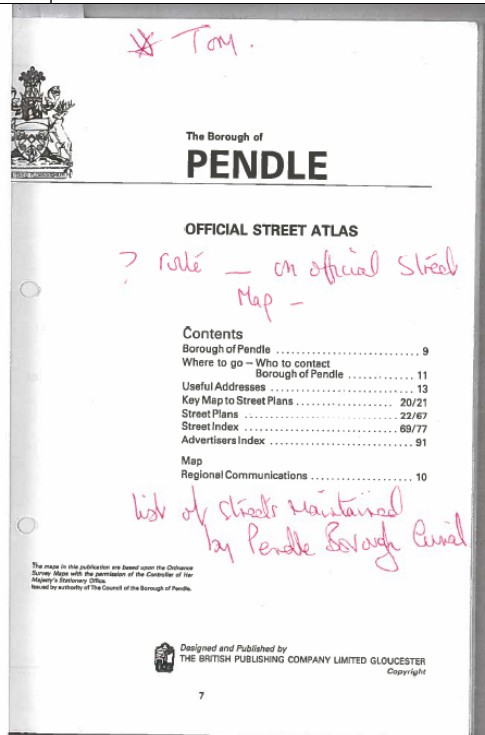 * Tom.
The Borough of
PENDLE
OFFICIAL STREET ATLAS
? route — on official Street
Map –
Contents
Borough of Pendle ........................... 9
Where to go – Who to contact
Borough of Pendle ............ 11
Useful Addresses ........................... 13
Key Map to Street Plans .................. 20/21
Street Plans ........................... 22/67
Street Index ........................... 69/77
Advertisers Index ........................... 91
Map
Regional Communications ................... 10
list of streets maintained
by Pendle Borough Council
The maps in this publication are based upon the Ordnance
Survey Maps with the permission of the Controller of Her
Majesty's Stationery Office.
Issued by authority of The Council of the Borough of Pendle.
Designed and Published by
THE BRITISH PUBLISHING COMPANY LIMITED GLOUCESTER
Copyright
7